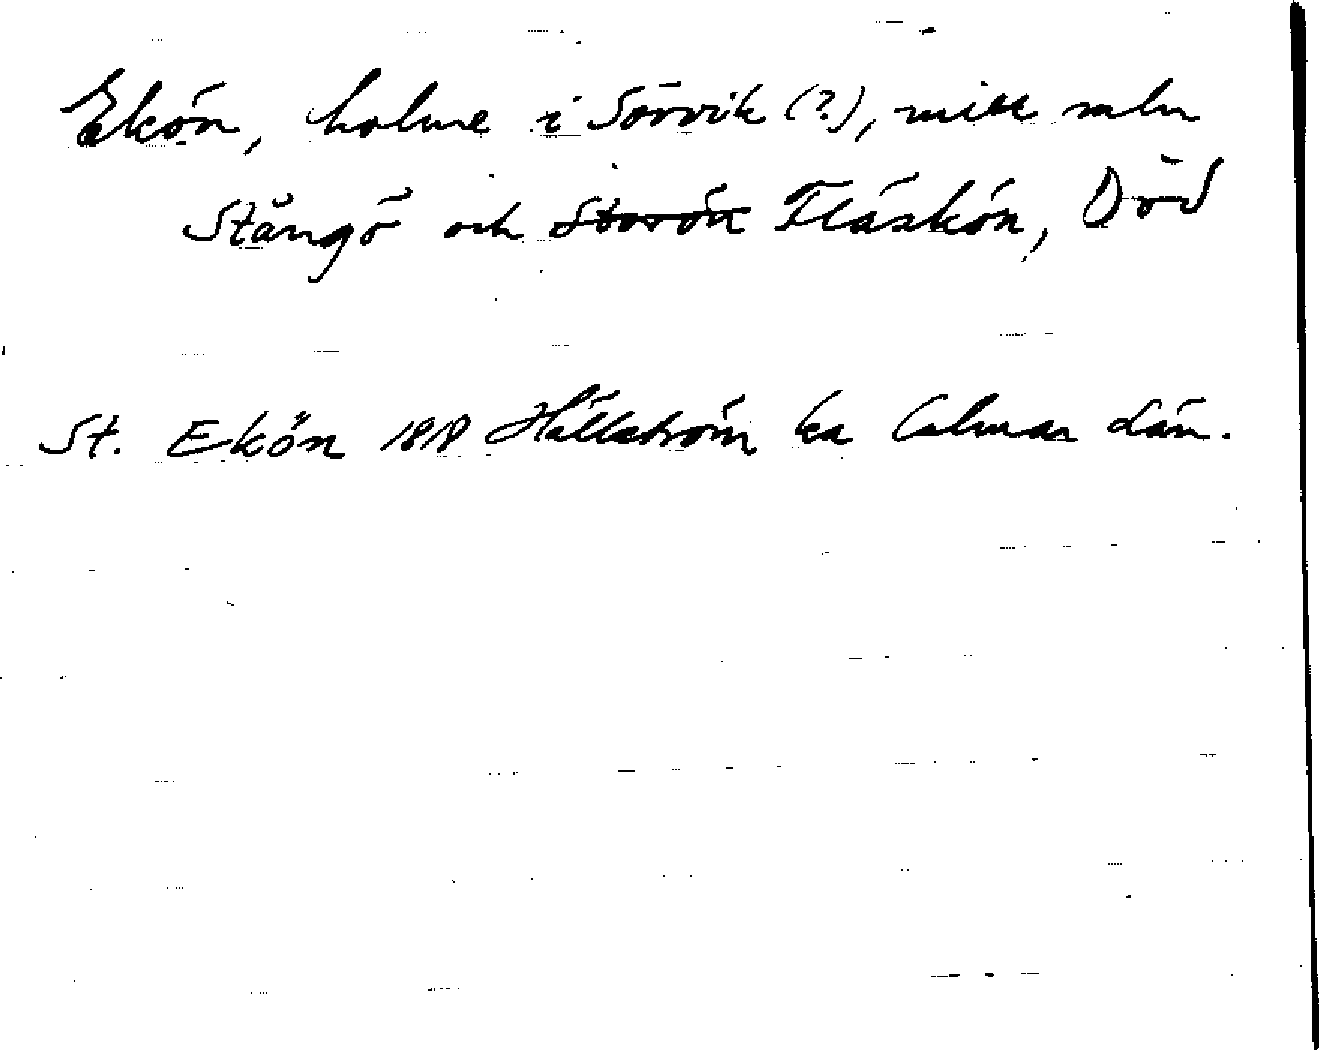 Ekön, holme i Sörvik (?), mitt mln
Stångö och Storön Fläskön, Död
St. Ekön 1818 Hällström ka Calmar Län.